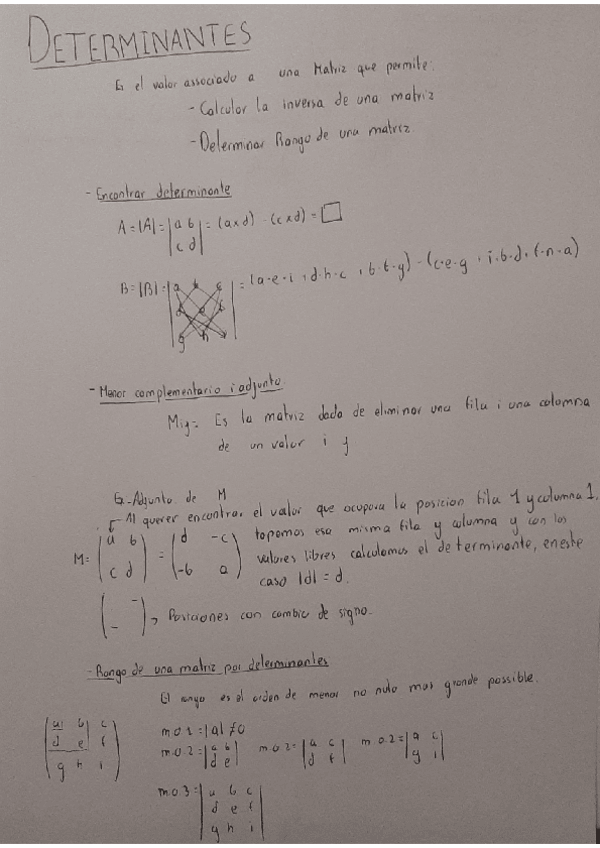 DETERMINANTES
Es el valor associado a una Matriz que permite:
- Calcular la inversa de una matriz
- Determinar Rango de una matriz.
- Encontrar determinante
A = |A| = |a b| = (a x d) - (c x d) = □
c d
B = |B| = |a b c| = (a·e·i + d·h·c + b·f·g) - (c·e·g + i·b·d + f·h·a)
d e f
g h i
- Menor complementario i adjunto.
Mij = Es la matriz dada de eliminar una fila i una colomna
de un valor i j
Ex-Adjunto de M
Al querer encontrar el valor que ocupara la posicion fila 1 y columna 1,
M = (a b) = (d -c) topamos esa misma fila y columna y con los
(c d) (-b a) valores libres calculamos el determinante, en este
caso |d| = d.
( - -) → Posiciones con cambio de signo.
- Rango de una matriz por determinantes
El rango es el orden de menor no nulo mas grande possible.
a b c
d e f
g h i
m o 1 = |a| ≠ 0
m o 2 = |a b| m o 2 = |a c| m o 2 = |a c|
d e d f g i
m o 3 = |a b c|
d e f
g h i